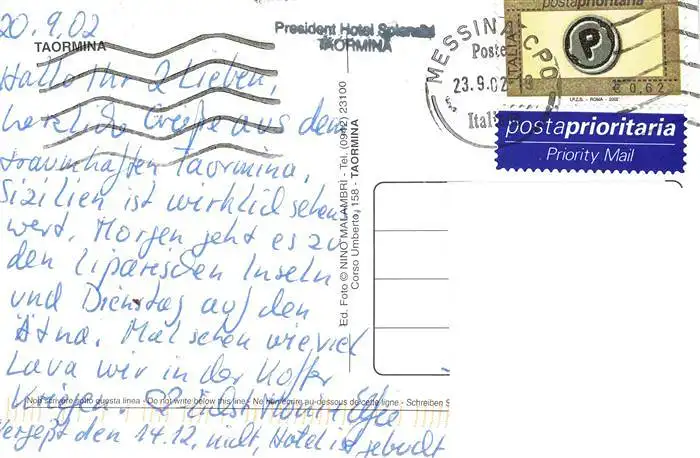 20.9.02
TAORMINA
Hallo Ihr 2 Lieben,
herzliche Grüße aus dem
traumhaften Taormina,
Sizilien ist wirklich sehens
wert. Morgen geht es zu
den liparischen Inseln
und Dienstag auf den
Ätna. Mal sehen wieviel
Lava wir in der Koffer
kriegen.
Non scrivere sotto questa linea - Do not write below this line - Ne rien écrire au-dessous de cette ligne - Schreiben S
Vergeßt den 14.12. nicht, Hotel ist gebucht
President Hotel Splendid
TAORMINA
Ed. Foto © NINO MALAMBRÌ - Tel. (0942) 23100
Corso Umberto, 158 - TAORMINA
MESSINA CPO
Poste
23.9.02
Italia
postaprioritaria
ITALIA
P
€ 0,62
I.P.Z.S. - ROMA - 2002
postaprioritaria
Priority Mail